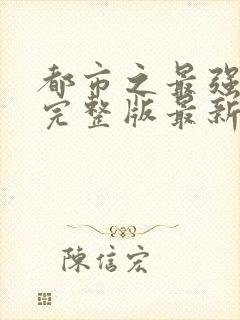 都市之最强
完整版最新
陳信宏